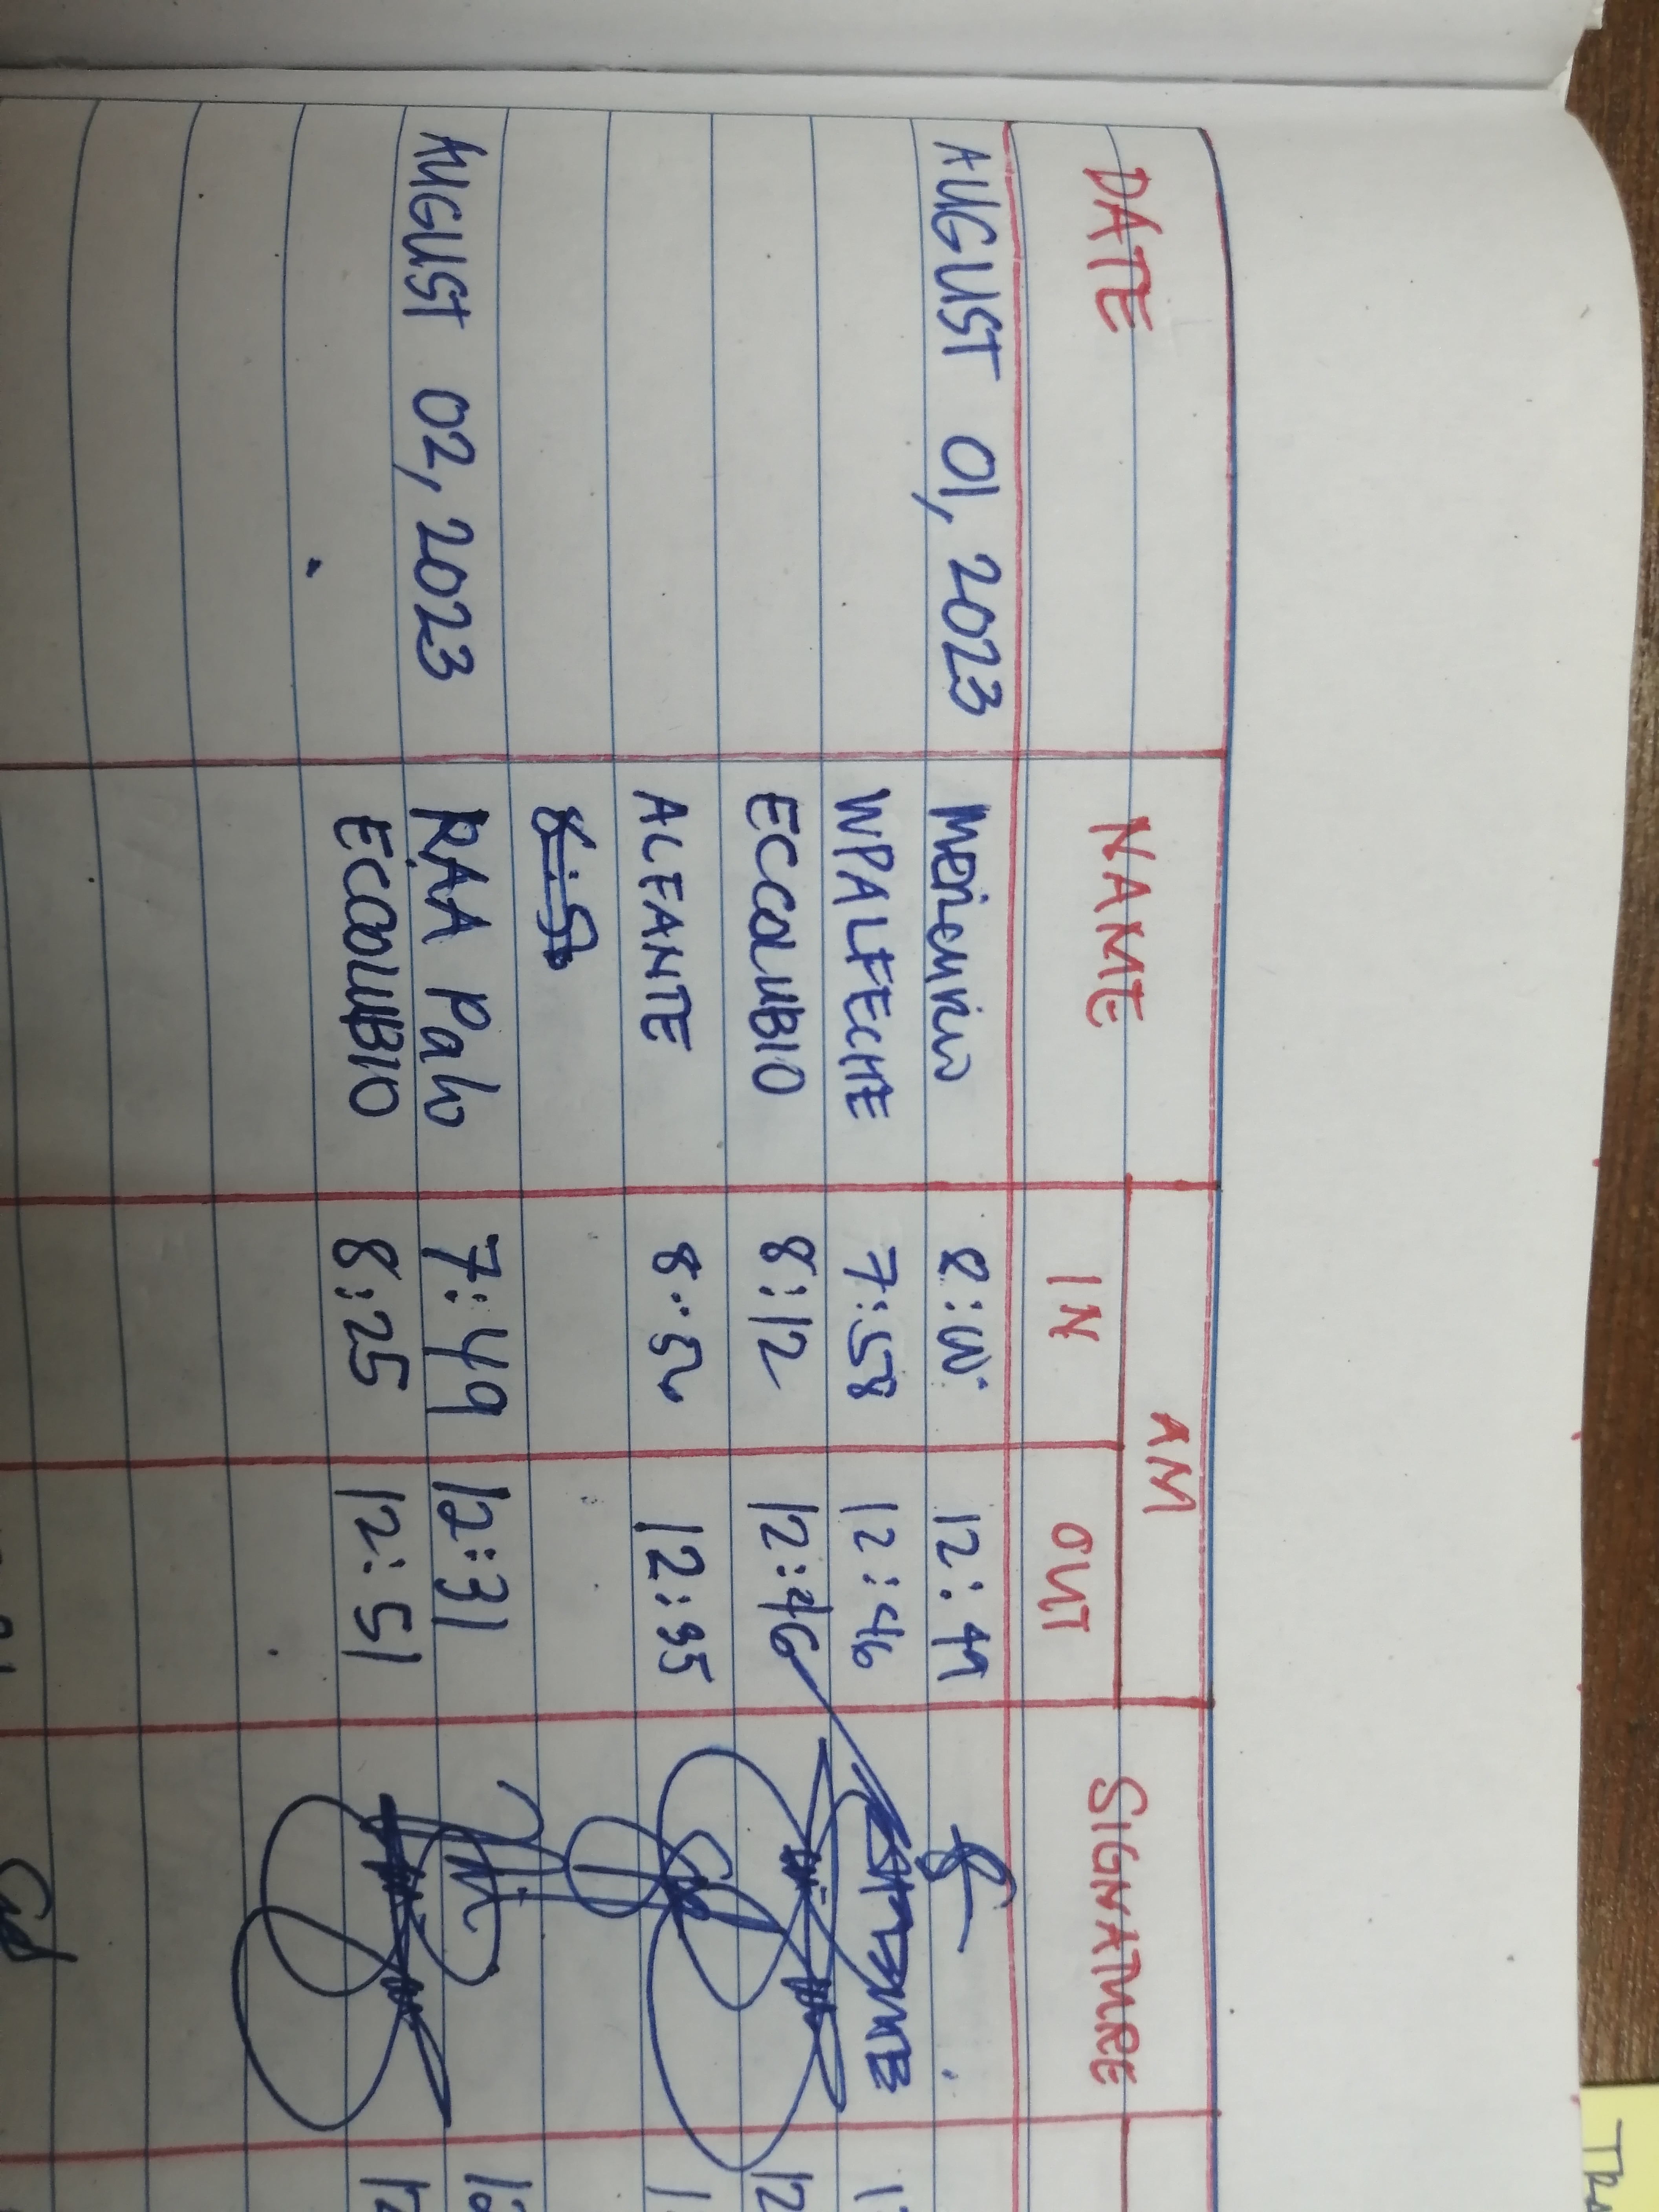 DATE NAME AM SIGNATURE
IN OUT
AUGUST 01, 2023 8:00 12:49
WPALFECHE 7:58 12:46
ECCOLUBIO 8:12 12:46
ACFANTE 8:50 12:35
AUGUST 02, 2023 RAA Palo 7:49 12:31
ECCOLUBIO 8:25 12:51